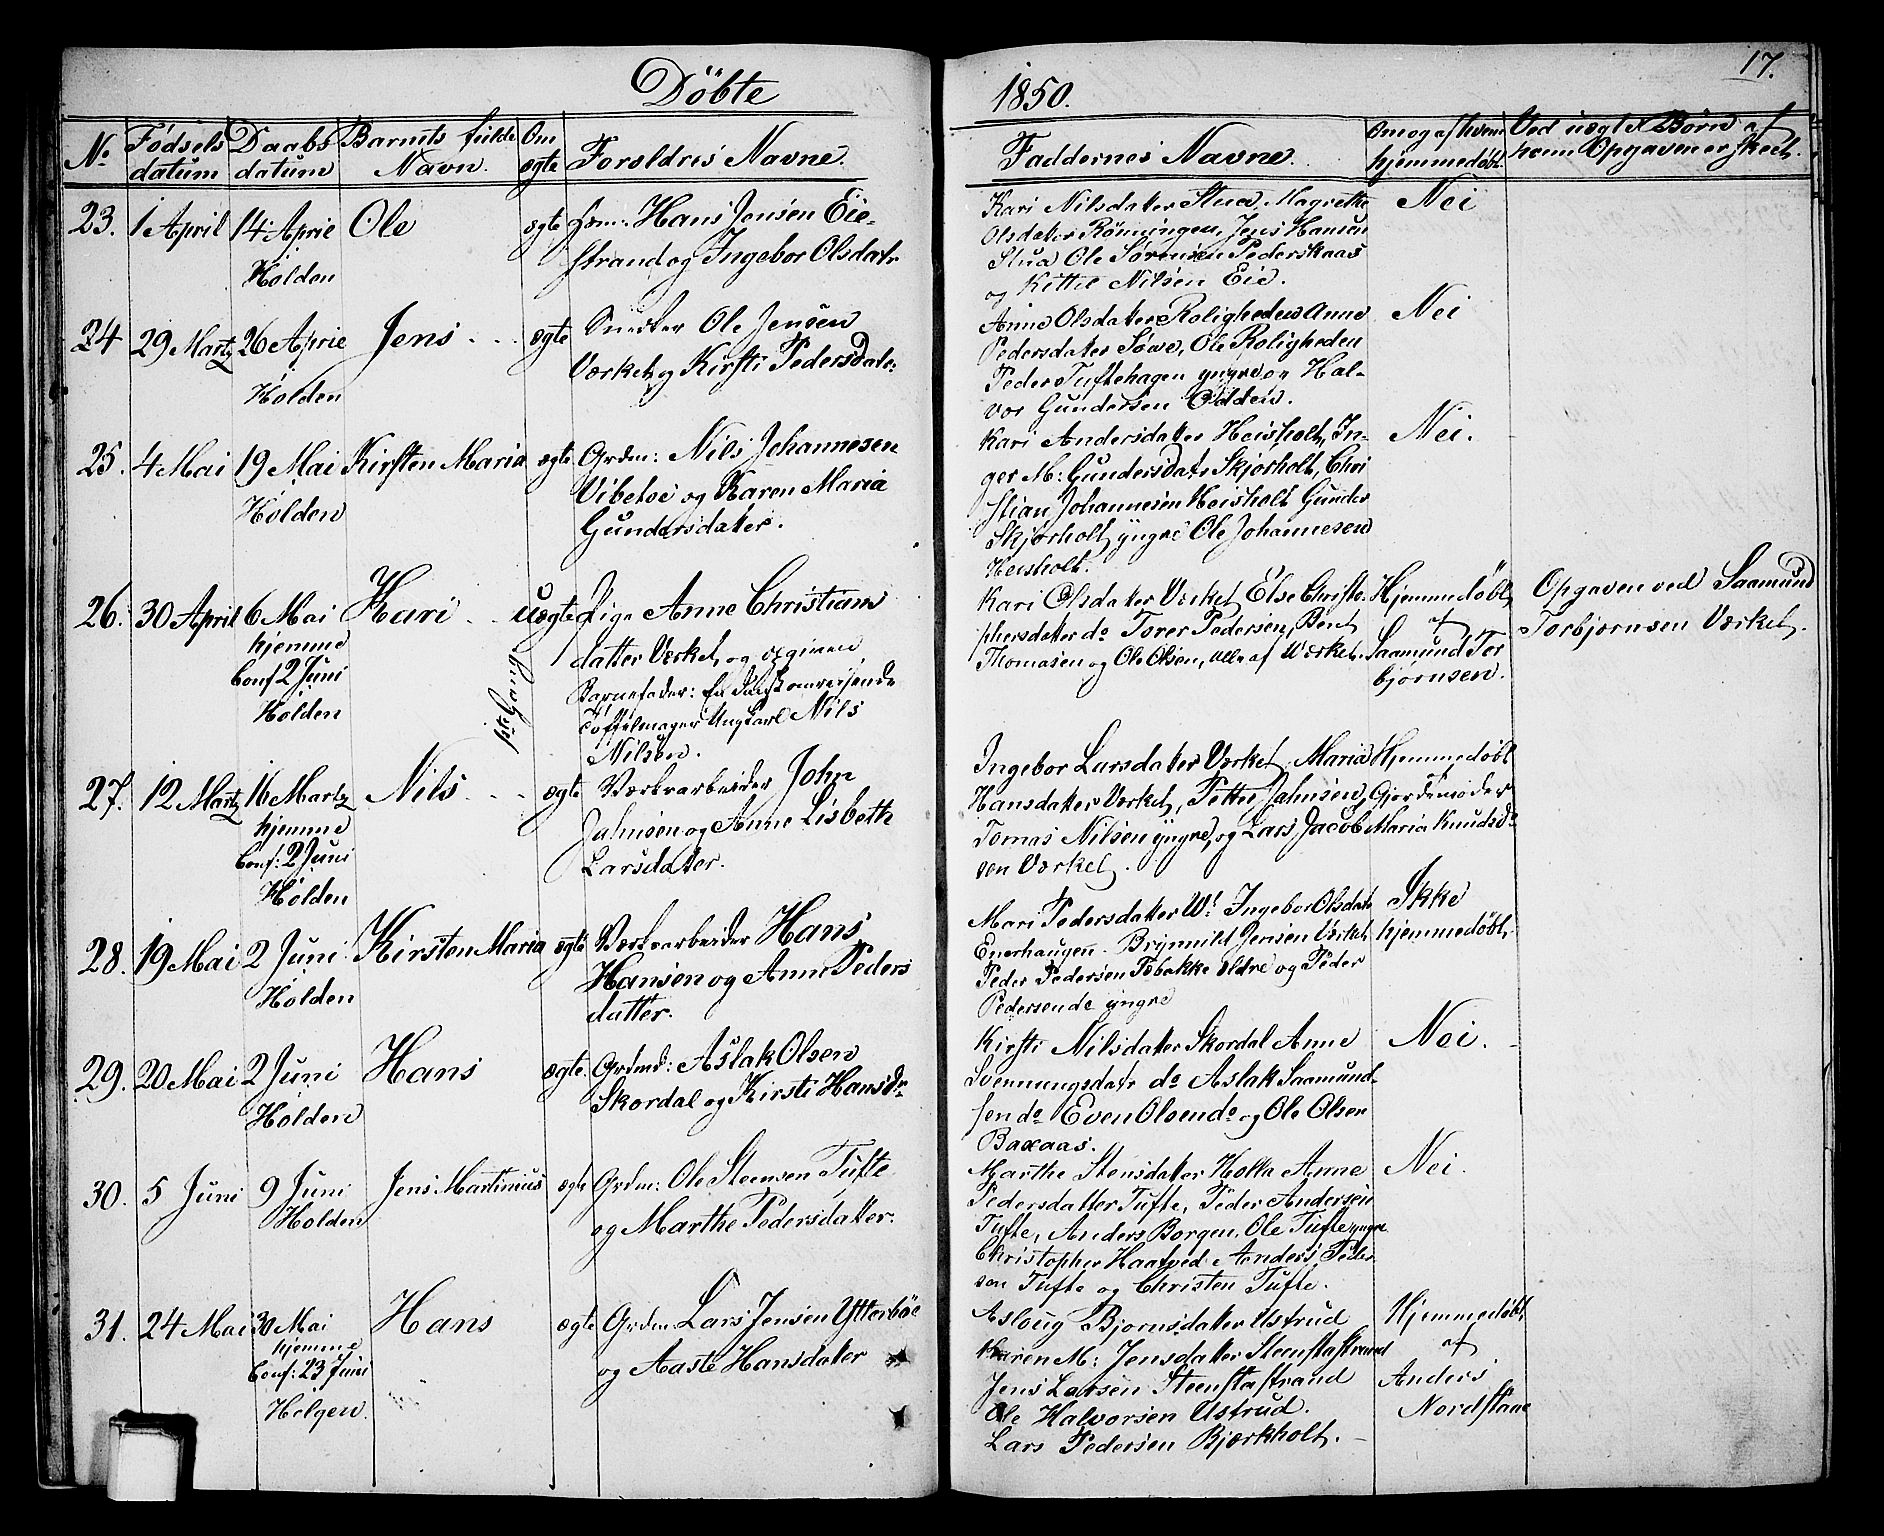 Döbte
1850.
17.
No
Födsels datum
Daabs datum
Barnets fulde Navn.
Om ægte
Forældres Navne.
Faddernes Navne.
Om og af hvem hjemmedöbt.
Ved uægte Börn af hvem Opgaven er skeet.
23.
1 April
14 April
Holden
Ole
ægte
Grm: Hans Jensen Eie-
strand og Ingebor Olsdatr
Kari Nilsdater Stua, Magrethe
Olsdater Rönningen, Jens Hansen
Stua Ole Sörensen Pederskaas
og Kittil Nilsen Eie.
Nei
24
29 Martz
26 April
Holden
Jens
ægte
Snedker Ole Jensen
Værket og Kirsti Pedersdatr
Anne Olsdater Roligheden Anne
Pedersdater Söve, Ole Roligheden
Peder Tuftehagen yngre og Hal-
vor Gundersen Odden.
Nei
25.
4 Mai
19 Mai
Holden
Kirsten Maria
ægte
Grdm: Nils Johannesen
Vibetoe og Karen Maria
Gundersdater.
Kari Andersdater Heisholt, In-
ger M: Gundersdatr Skjorholt, Chri
stian Johannesen Heisholt Gunder
Skjorholt yngre Ole Johannesen
Heisholt.
Nei.
26.
30 April
6 Mai
hjemme
Conf 2 Juni
Holden
Kari
uægte
1ste Gang
Pige Anne Christians
datter Værket og opgiven
Barnefader: En Dansk omreisende
Töffelmager Ungkarl Nils
Nilsen.
Kari Olsdater Værket Else Christo-
phersdater do Torer Pedersen, Bent
Thomasen og Ole Olsen, alle af Værket.
Hjemmedöbt
af
Saamund Tor
björnsen.
Opgaven ved Saamund
Torbjornsen Værket.
27.
12 Martz
16 Martz
hjemme
Conf: 2 Juni
Holden
Nils
ægte
Værkvarbeider John
Jahnsen og Anne Lisbeth
Larsdater.
Ingebor Larsdater Værket, Maria
Hansdater Værket, Petter Jahnsen,
Tomas Nilsen yngre, og Lars Jacob
sen Værket.
Hjemmedöbt
Gjordemoder
Maria Knudsdr
28.
19 Mai
2 Juni
Holden
Kirsten Maria
ægte
Værkvarbeider Hans
Hansen og Anne Peders
datter.
Mari Pedersdater W: Ingebor Olsdatr
Enerhaugen. Brynnild Jensen Værket
Peder Pedersen Tobakke eldre og Peder
Pedersen do yngre
Ikke
hjemmedöbt.
29.
20 Mai
2 Juni
Holden
Hans
ægte.
Grdmd: Aslak Olsen
Skordal og Kirsti Hansdr
Kirsti Nilsdater Skordal Anne
Svennungsdatr do Aslak Saamund-
sen do Even Olsen do og Ole Olsen
Baxaas.
Nei.
30.
5 Juni
9 Juni
Holden
Jens Martinius
ægte
Grdm: Ole Steensen Tufte
og Marthe Pedersdatter.
Marthe Stensdater Holta Anne
Pedersdatter Tufte, Peder Andersen
Tufte, Anders Borgen, Ole Tufte yngre
Christopher Haatved Anders Peder
sen Tufte og Christen Tufte.
Nei.
31.
24 Mai
30 Mai
hjemme
Conf: 23 Juni
Helgen.
Hans
ægte
Grdm: Lars Jensen Ytterböe
og Aaste Hansdater
Asloug Bjornsdater Ustrud
Karen M: Jensdater Steenstastrand
Jens Larsen Steenstastrand
Ole Halvorsen Ustrud.
Lars Pedersen Bjærkholt.
Hjemmedöbt
af
Anders
Nordstaae